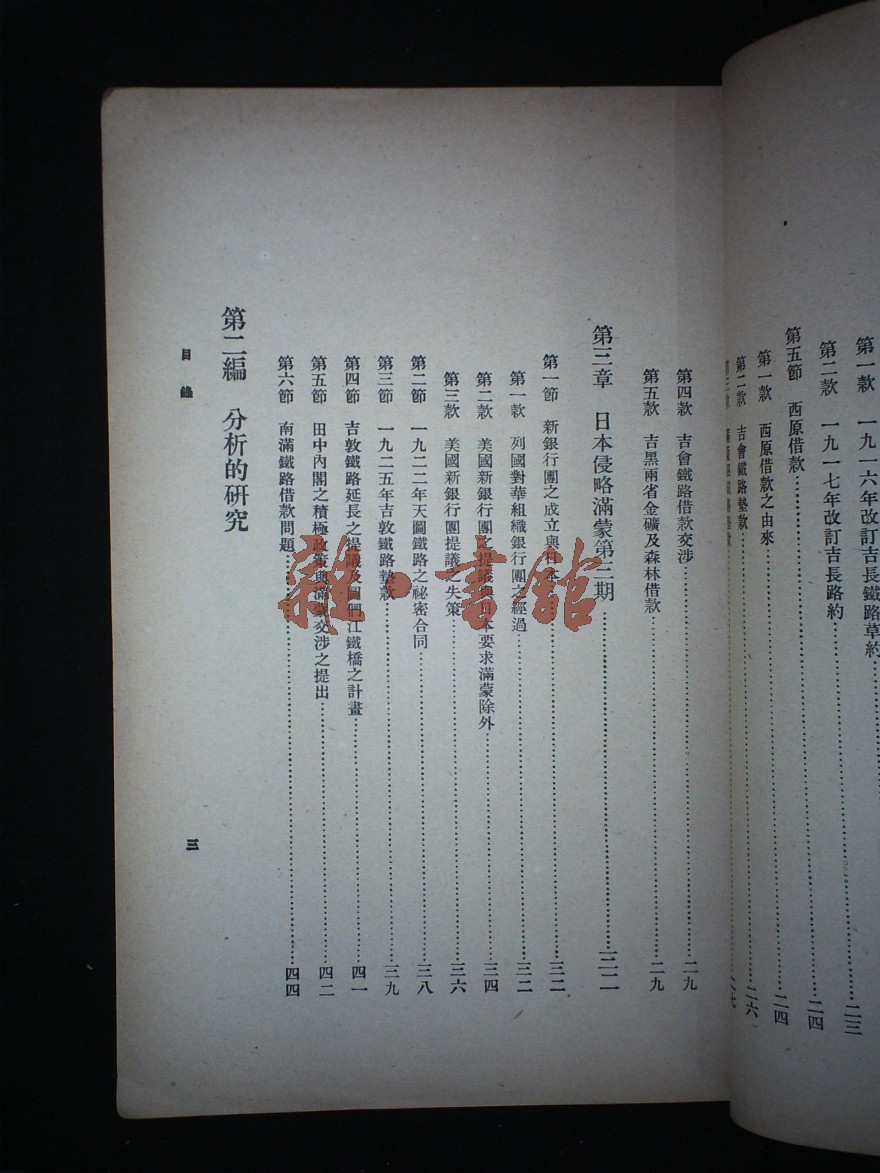 第一款 一九一六年改訂吉長鐵路草約
第二款 一九一七年改訂吉長路約……二三
第五節 西原借款……二四
第一款 西原借款之由來……二四
第二款 吉會鐵路墊款……二六
第四款 吉會鐵路借款交涉……二九
第五款 吉黑兩省金礦及森林借款……二九
第三章 日本侵略滿蒙第三期……三二
第一節 新銀行團之成立與日本……三二
第一款 列國對華組織銀行團之經過……三二
第二款 美國新銀行團之提議與日本要求滿蒙除外……三四
第三款 美國新銀行團提議之失策……三六
第二節 一九二二年天圖鐵路之祕密合同……三八
第三節 一九二五年吉敦鐵路墊款……三九
第四節 吉敦鐵路延長之提議及圖們江鐵橋之計畫……四一
第五節 田中內閣之積極政策與滿蒙交涉之提出……四二
第六節 南滿鐵路借款問題……四四
第二編 分析的研究
目錄
三
雜·書館